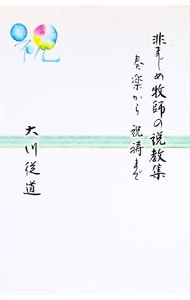 非まじめ牧師の説教集
奏楽から祝祷まで
大川従道